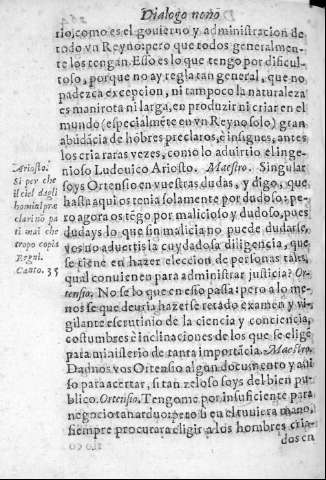 Dialogo nono
rio, como es el gouierno y administracion de
todo vn Reyno: pero que todos generalmen-
te los tengan. Esso es lo que tengo por dificul-
toso, porque no ay regla tan general, que no
padezca excepcion, ni tampoco la naturaleza
es manirota ni larga, en produzir ni criar en el
mundo (especialmẽte en vn Reyno solo) gran
abũdãcia de hõbres preclaros, è insignes, antes
los cria raras vezes, como lo aduirtio el inge-
nioso Ludouico Ariosto. Maestro. Singular
soys Ortensio en vuestras dudas, y digo, que
hasta aqui os tenia solamente por dudoso; pe-
ro agora os tẽgo por malicioso y dudoso, pues
dudays lo que sin malicia no puede dudarse,
vos no aduertis la cuydadosa diligencia, que
se tiene en hazer eleccion de personas tales,
qual conuienen para administrar justicia? Or-
tensio. No se lo que en esso passa: pero a lo me-
nos se que deuria hazerse retado examen y vi-
gilante escrutinio de la ciencia y conciencia,
costumbres è inclinaciones de los que se elige
para ministerio de tanta importãcia. Maestro.
Dadnos vos Ortensio algun documento y aui-
so para acertar, si tan zeloso soys del bien pu-
blico. Ortensio. Tengome por insuficiente para
negocio tan arduo: pero si en el tuniera mano,
siempre procurara eligir a los hombres cria-
dos en
Ariosto.
Si per che
il ciel dagli
homini pre
clari nõ pa
ti mai che
tropo copia
Regni.
Canto. 35